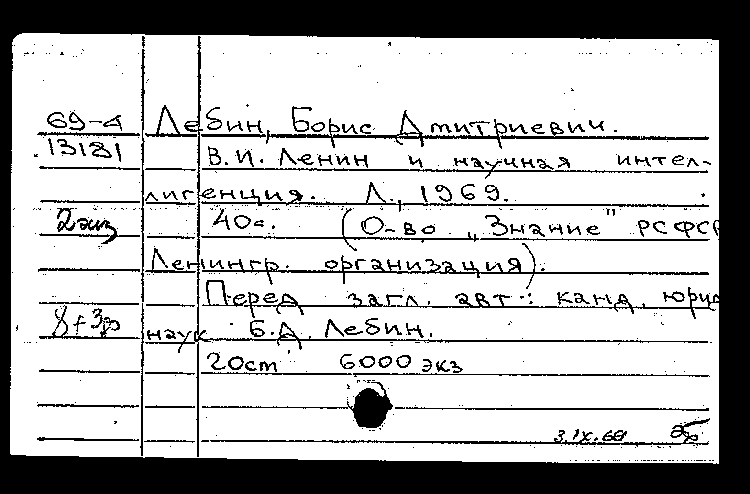 69-4 Лебин, Борис Дмитриевич.
13181 В.И. Ленин и научная интел-
лигенция. Л., 1969.
2 экз 40с. (О-во „Знание" РСФСР
Ленингр. организация).
Перед загл. авт.: канд. юрид
наук Б.Д. Лебин.
20см 6000 экз
3.IX.69